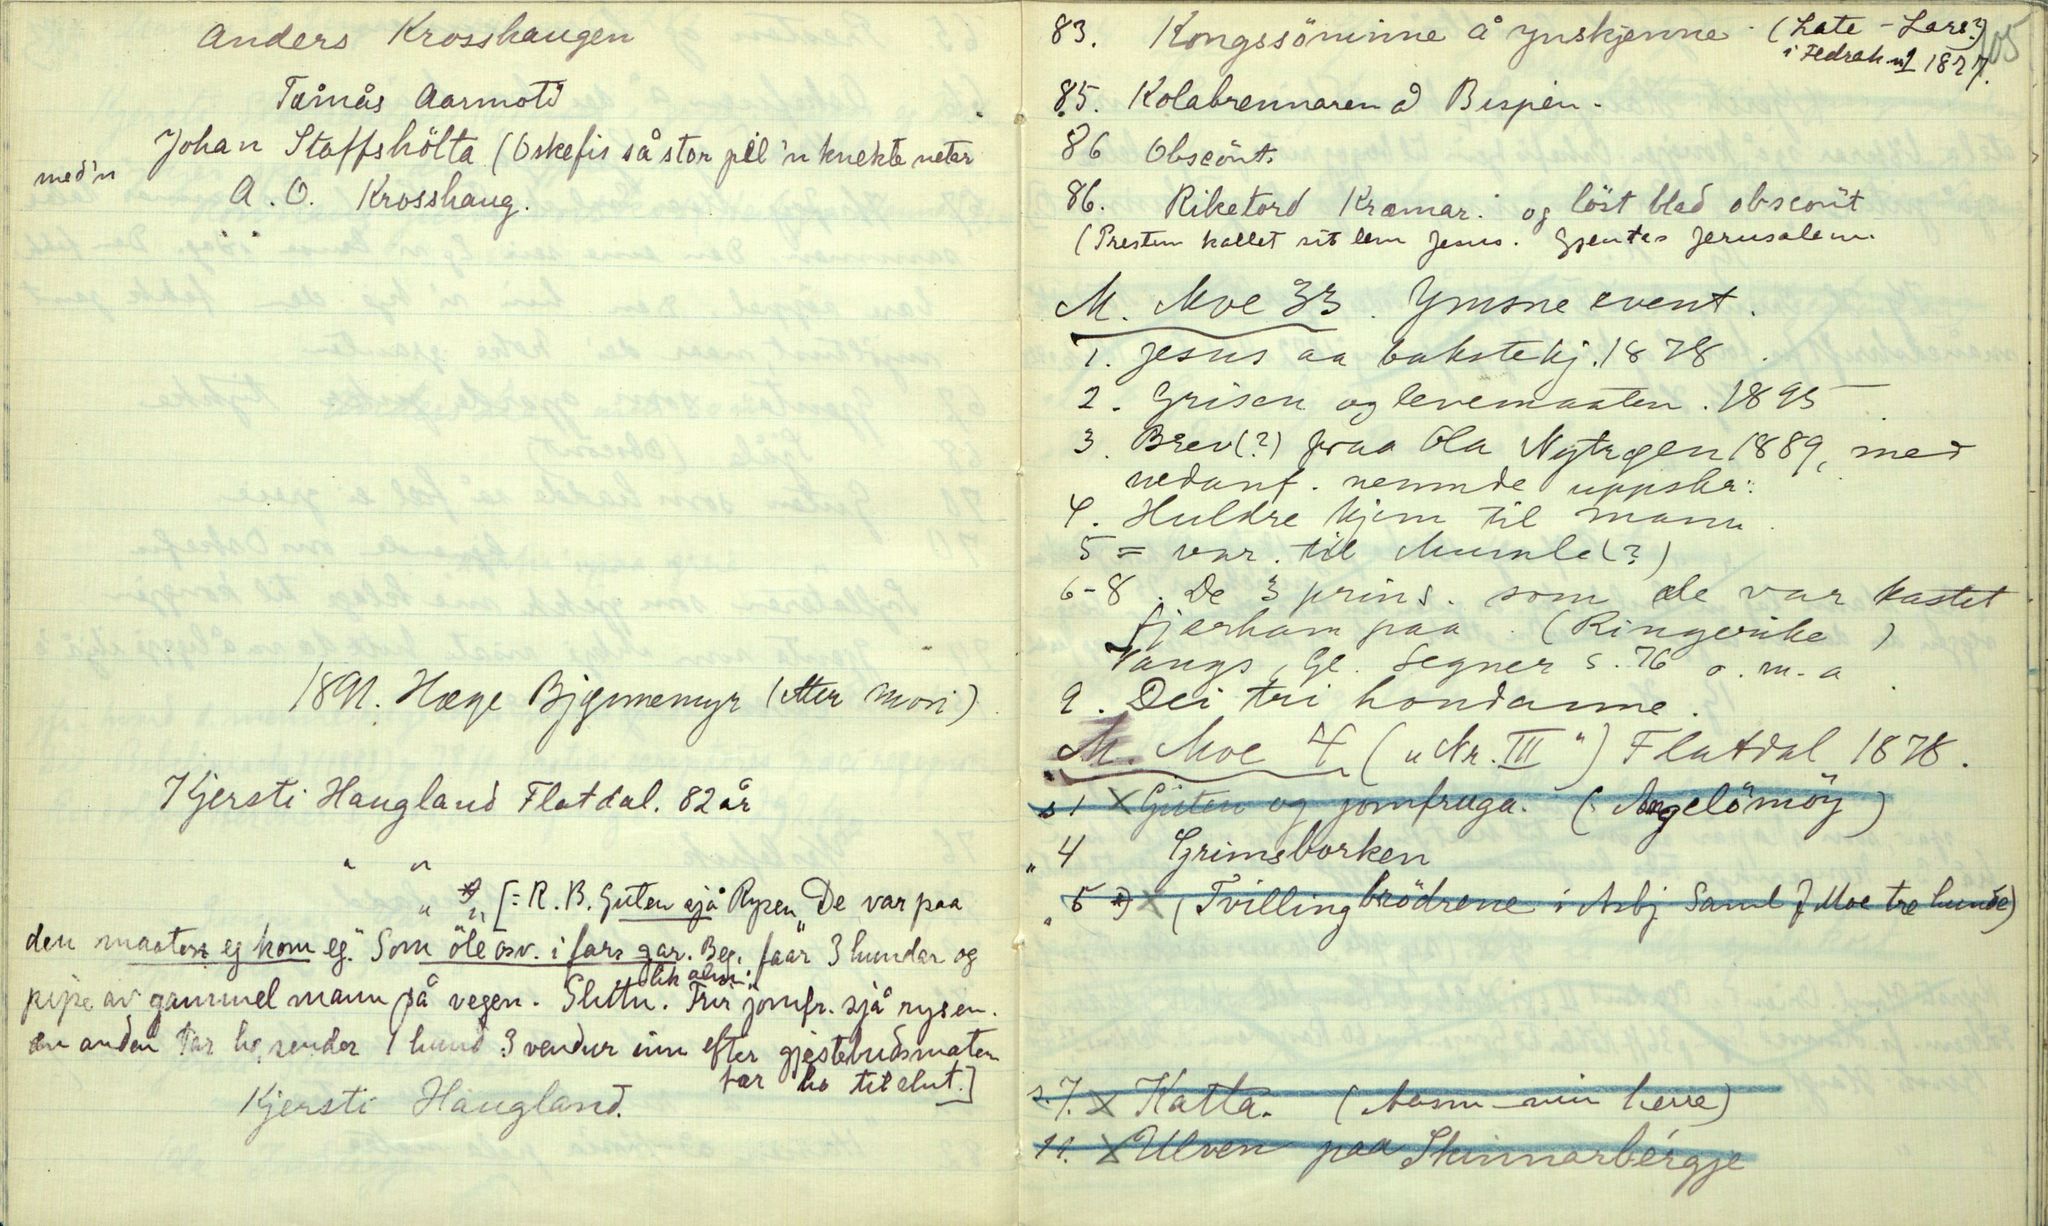 Anders Krosshaugen
Tarnås Aarmoti
Johan Staffshölta (Oskefis så stor pil 'n knekte neter
med'n
A. O. Krosshaug.
1891. Hæge Bjgunemyr (etter mori)
Kjersti Haugland Flatdal. 82 år
" "
" " [= R. B. Guten sjå Rysen „De var paa
den maaten eg kom eg." Som öle osv. i fars gar. Beg. faar 3 hundar og
pipe av gammel mann på vegen. Slutn. Frir jomfr. sjå rysen.
en anden tar ho, sender 1 hund 3 vendur inn efter gjestebudsmaten
tar ho til slut.]
Kjersti Haugland.
105
83. Kongssöninne å ynskjenne (Late-Lars?)
i Fedrah 1877.
85. Kolabrennaren å Bispen.
86 Obscönt.
86. Riketord Kramar. og löst blad obscönt
(Presten kallet sit lem Jesus. Gjentas Jerusalem.
M. Moe 33. Ymsne event.
1. Jesus aa bakstekj. 1878.
2. Grisen og levemaaten. 1895
3. Brev(?) fraa Ola Nytrøen 1889, med
nedanf. nemnde uppskr:
4. Huldre kjem til mann.
5 = var. til Mumle(?)
6-8. De 3 prins. som de var kastet
fjærham paa. (Ringerike)
Vangs, Gl. Segner s. 76 o. m. a.
9. Dei tri hondanne.
M. Moe 4 („Nr. III") Flatdal 1878.
s 1 x Guten og jomfruga. (Angelömöy)
" 4 Grimsborken
" 5 x (Tvillingbrödrene i Asbj Saml J Moe tre hunde)
s 7. x Katta. (Aasm min herre)
11. x Ulven paa Skinnarbergje